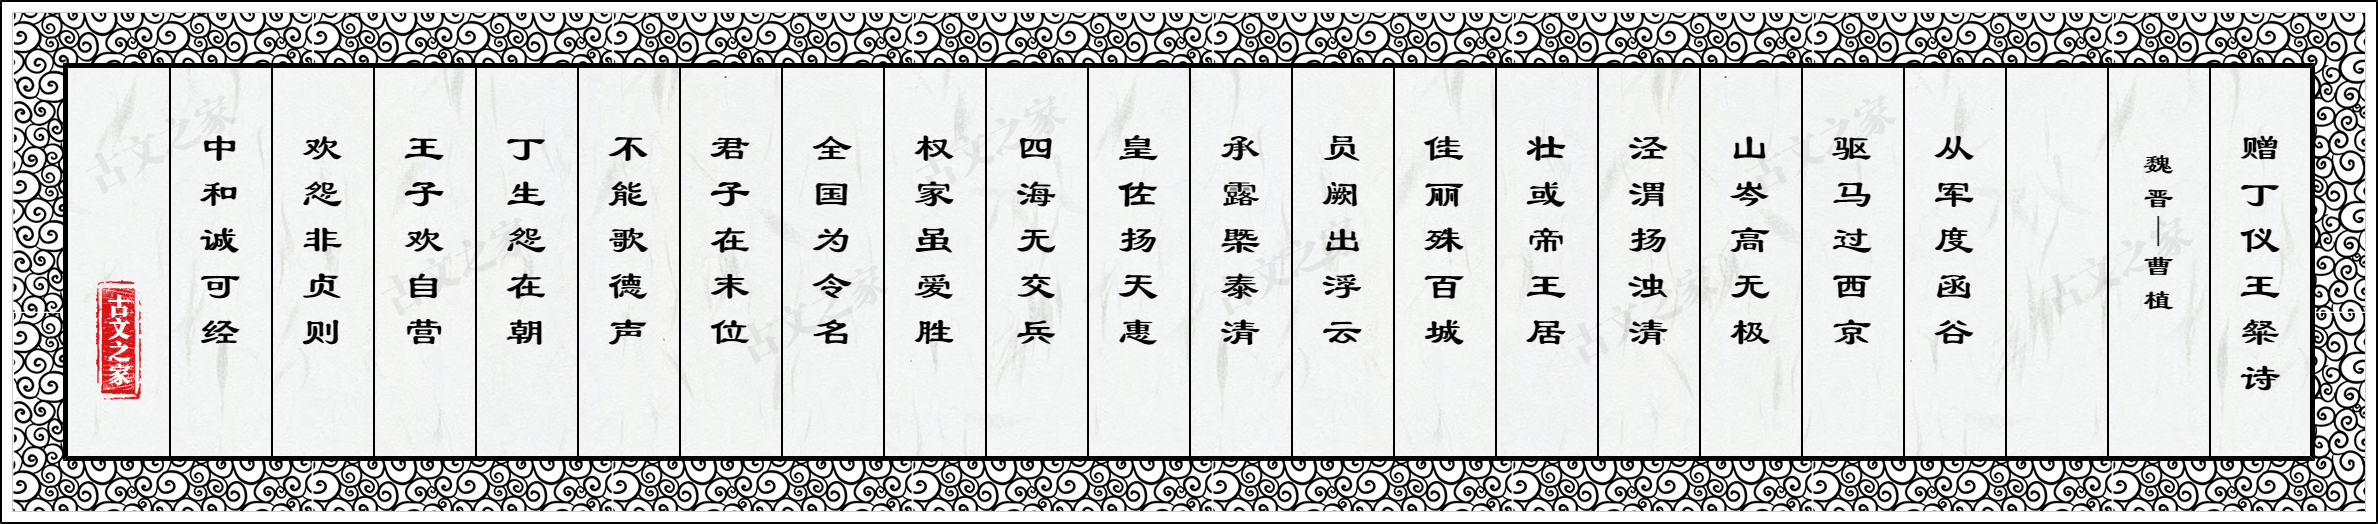 赠丁仪王粲诗
魏晋—曹植
从军度函谷
驱马过西京
山岑高无极
泾渭扬浊清
壮或帝王居
佳丽殊百城
员阙出浮云
承露槩泰清
皇佐扬天惠
四海无交兵
权家虽爱胜
全国为令名
君子在末位
不能歌德声
丁生怨在朝
王子欢自营
欢怨非贞则
中和诚可经
古文之家